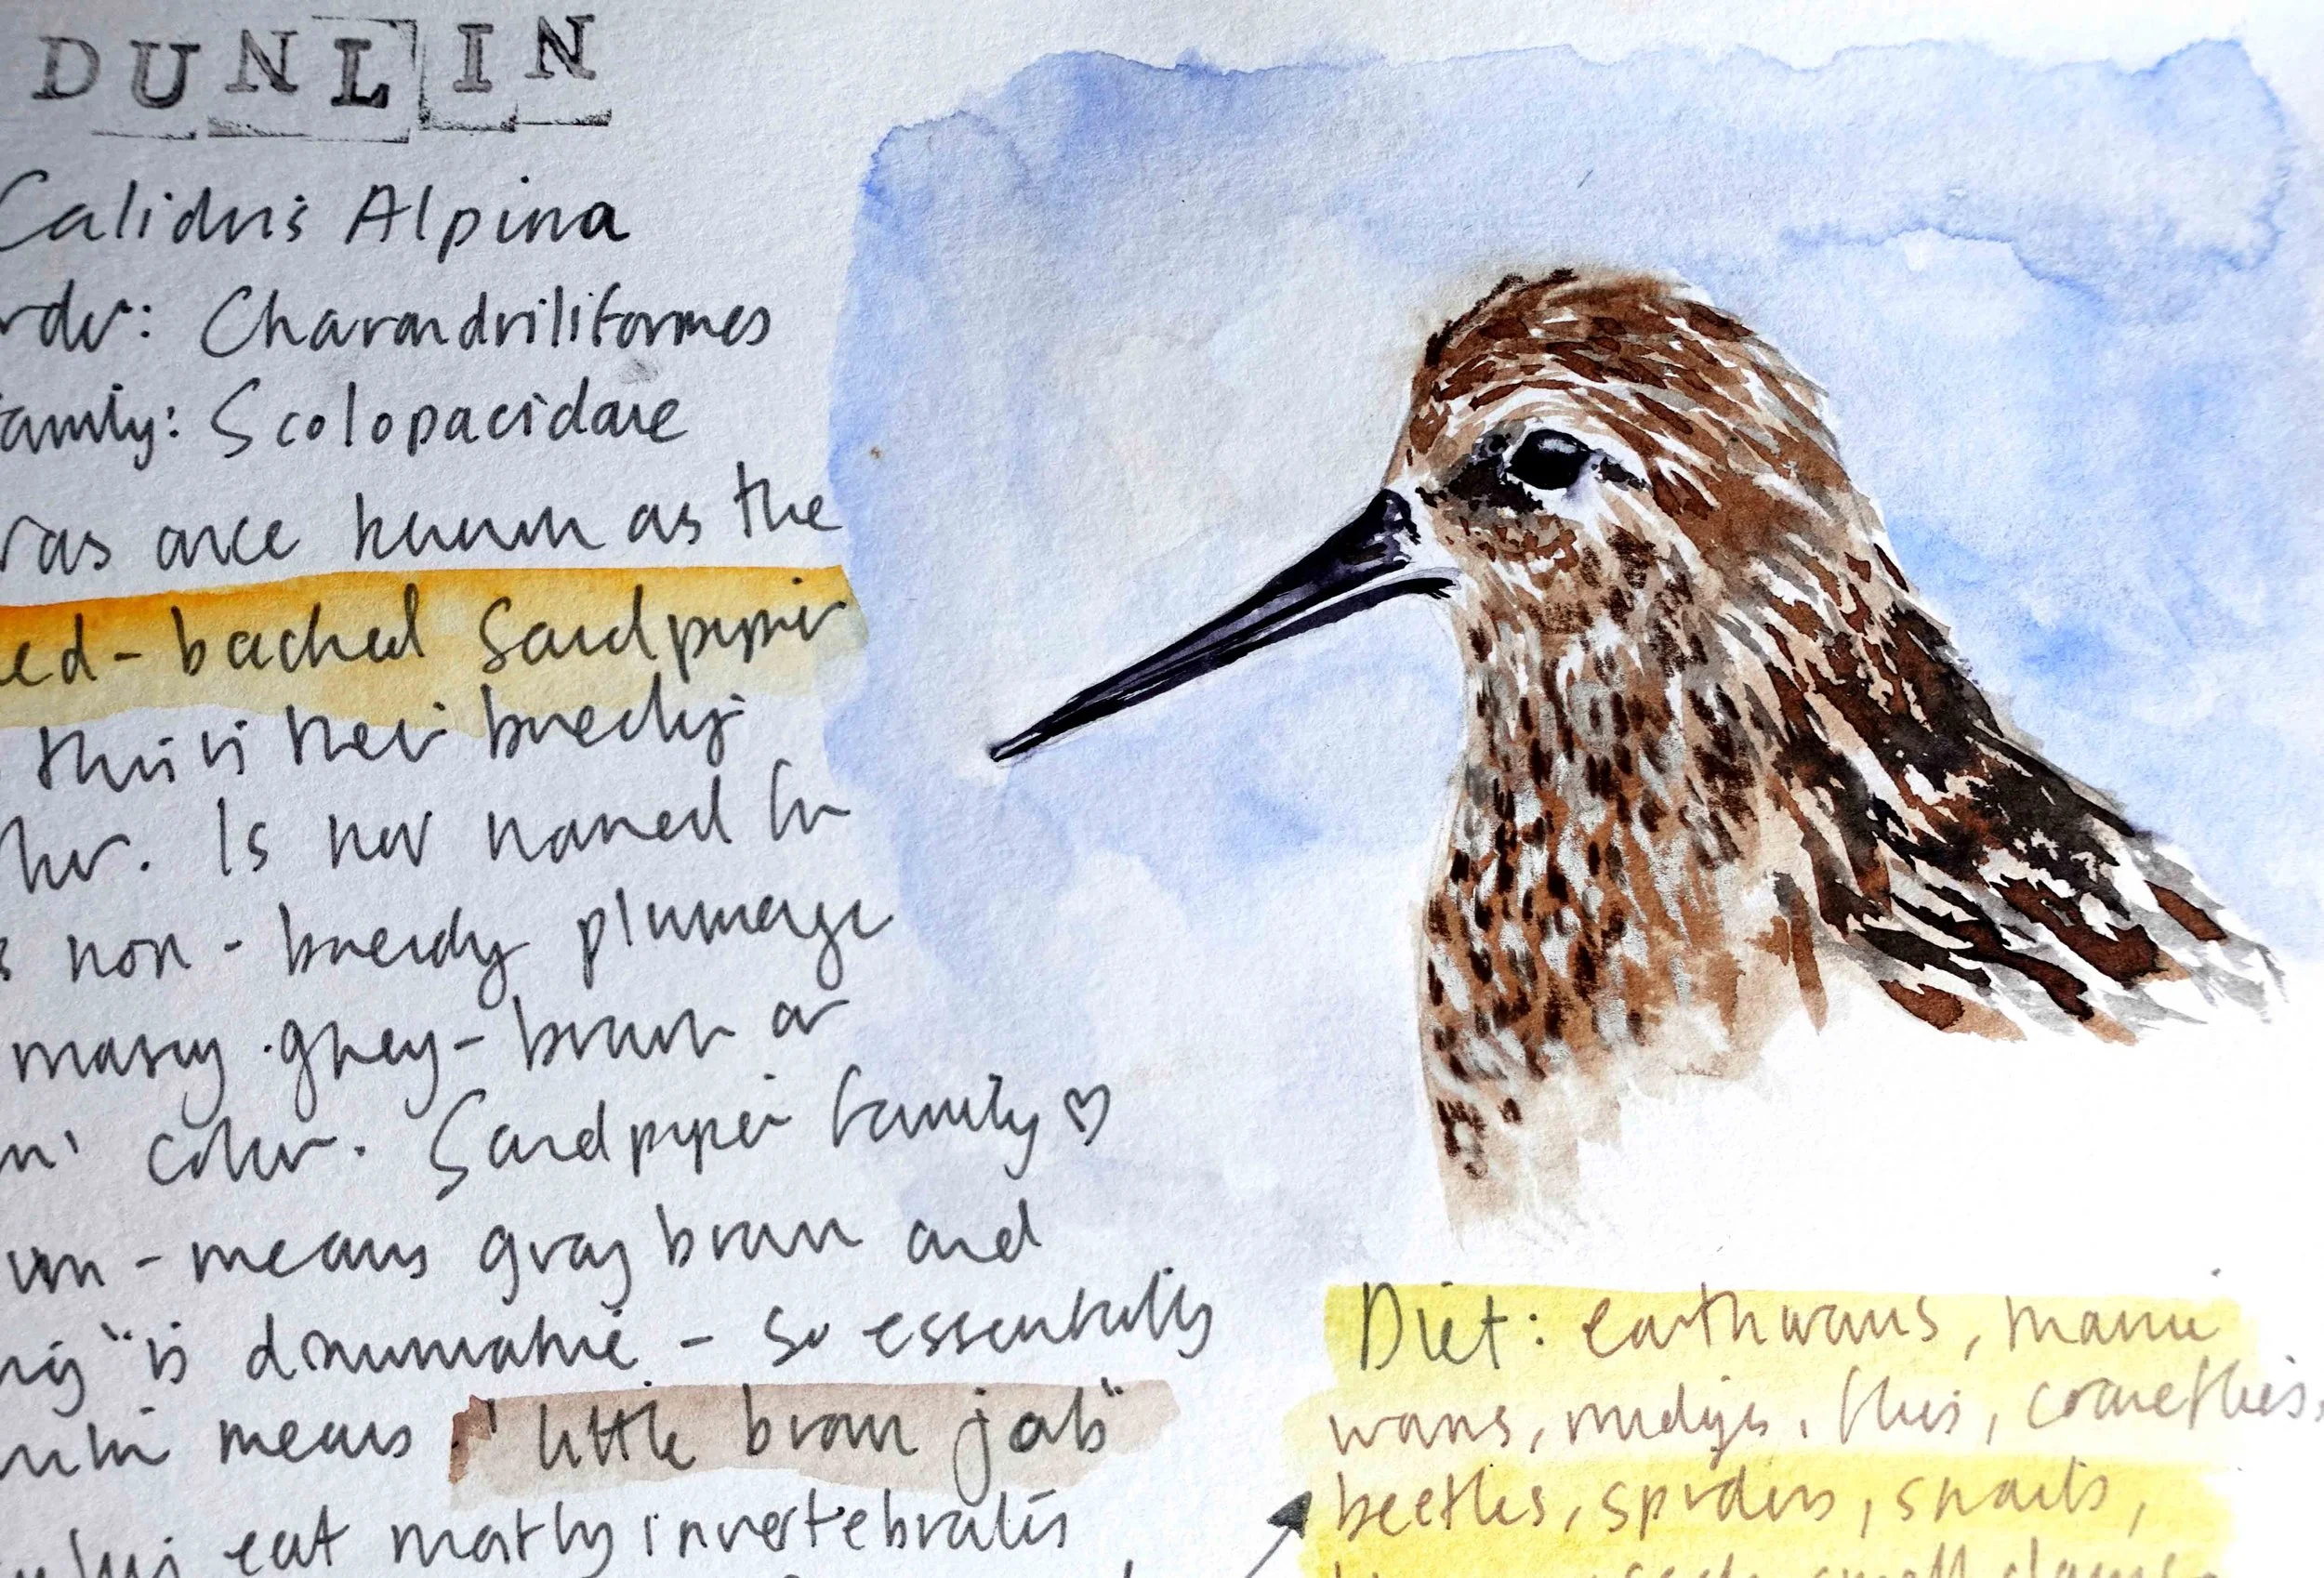 DUNLIN
Calidris Alpina
rder: Charandriliformes
Family: Scolopacidae
was once known as the
ed-backed Sandpiper
this is their breeding
. Is now named for
s non-breeding plumage
mousy grey-brown or
n' color. Sandpiper family ♡
un - means gray brown and
is diminutive - so essentially
means "little brown job"
eat mostly invertebrates
Diet: earthworms, marine
worms, midges, flies, craneflies,
beetles, spiders, snails,
seeds, small clams